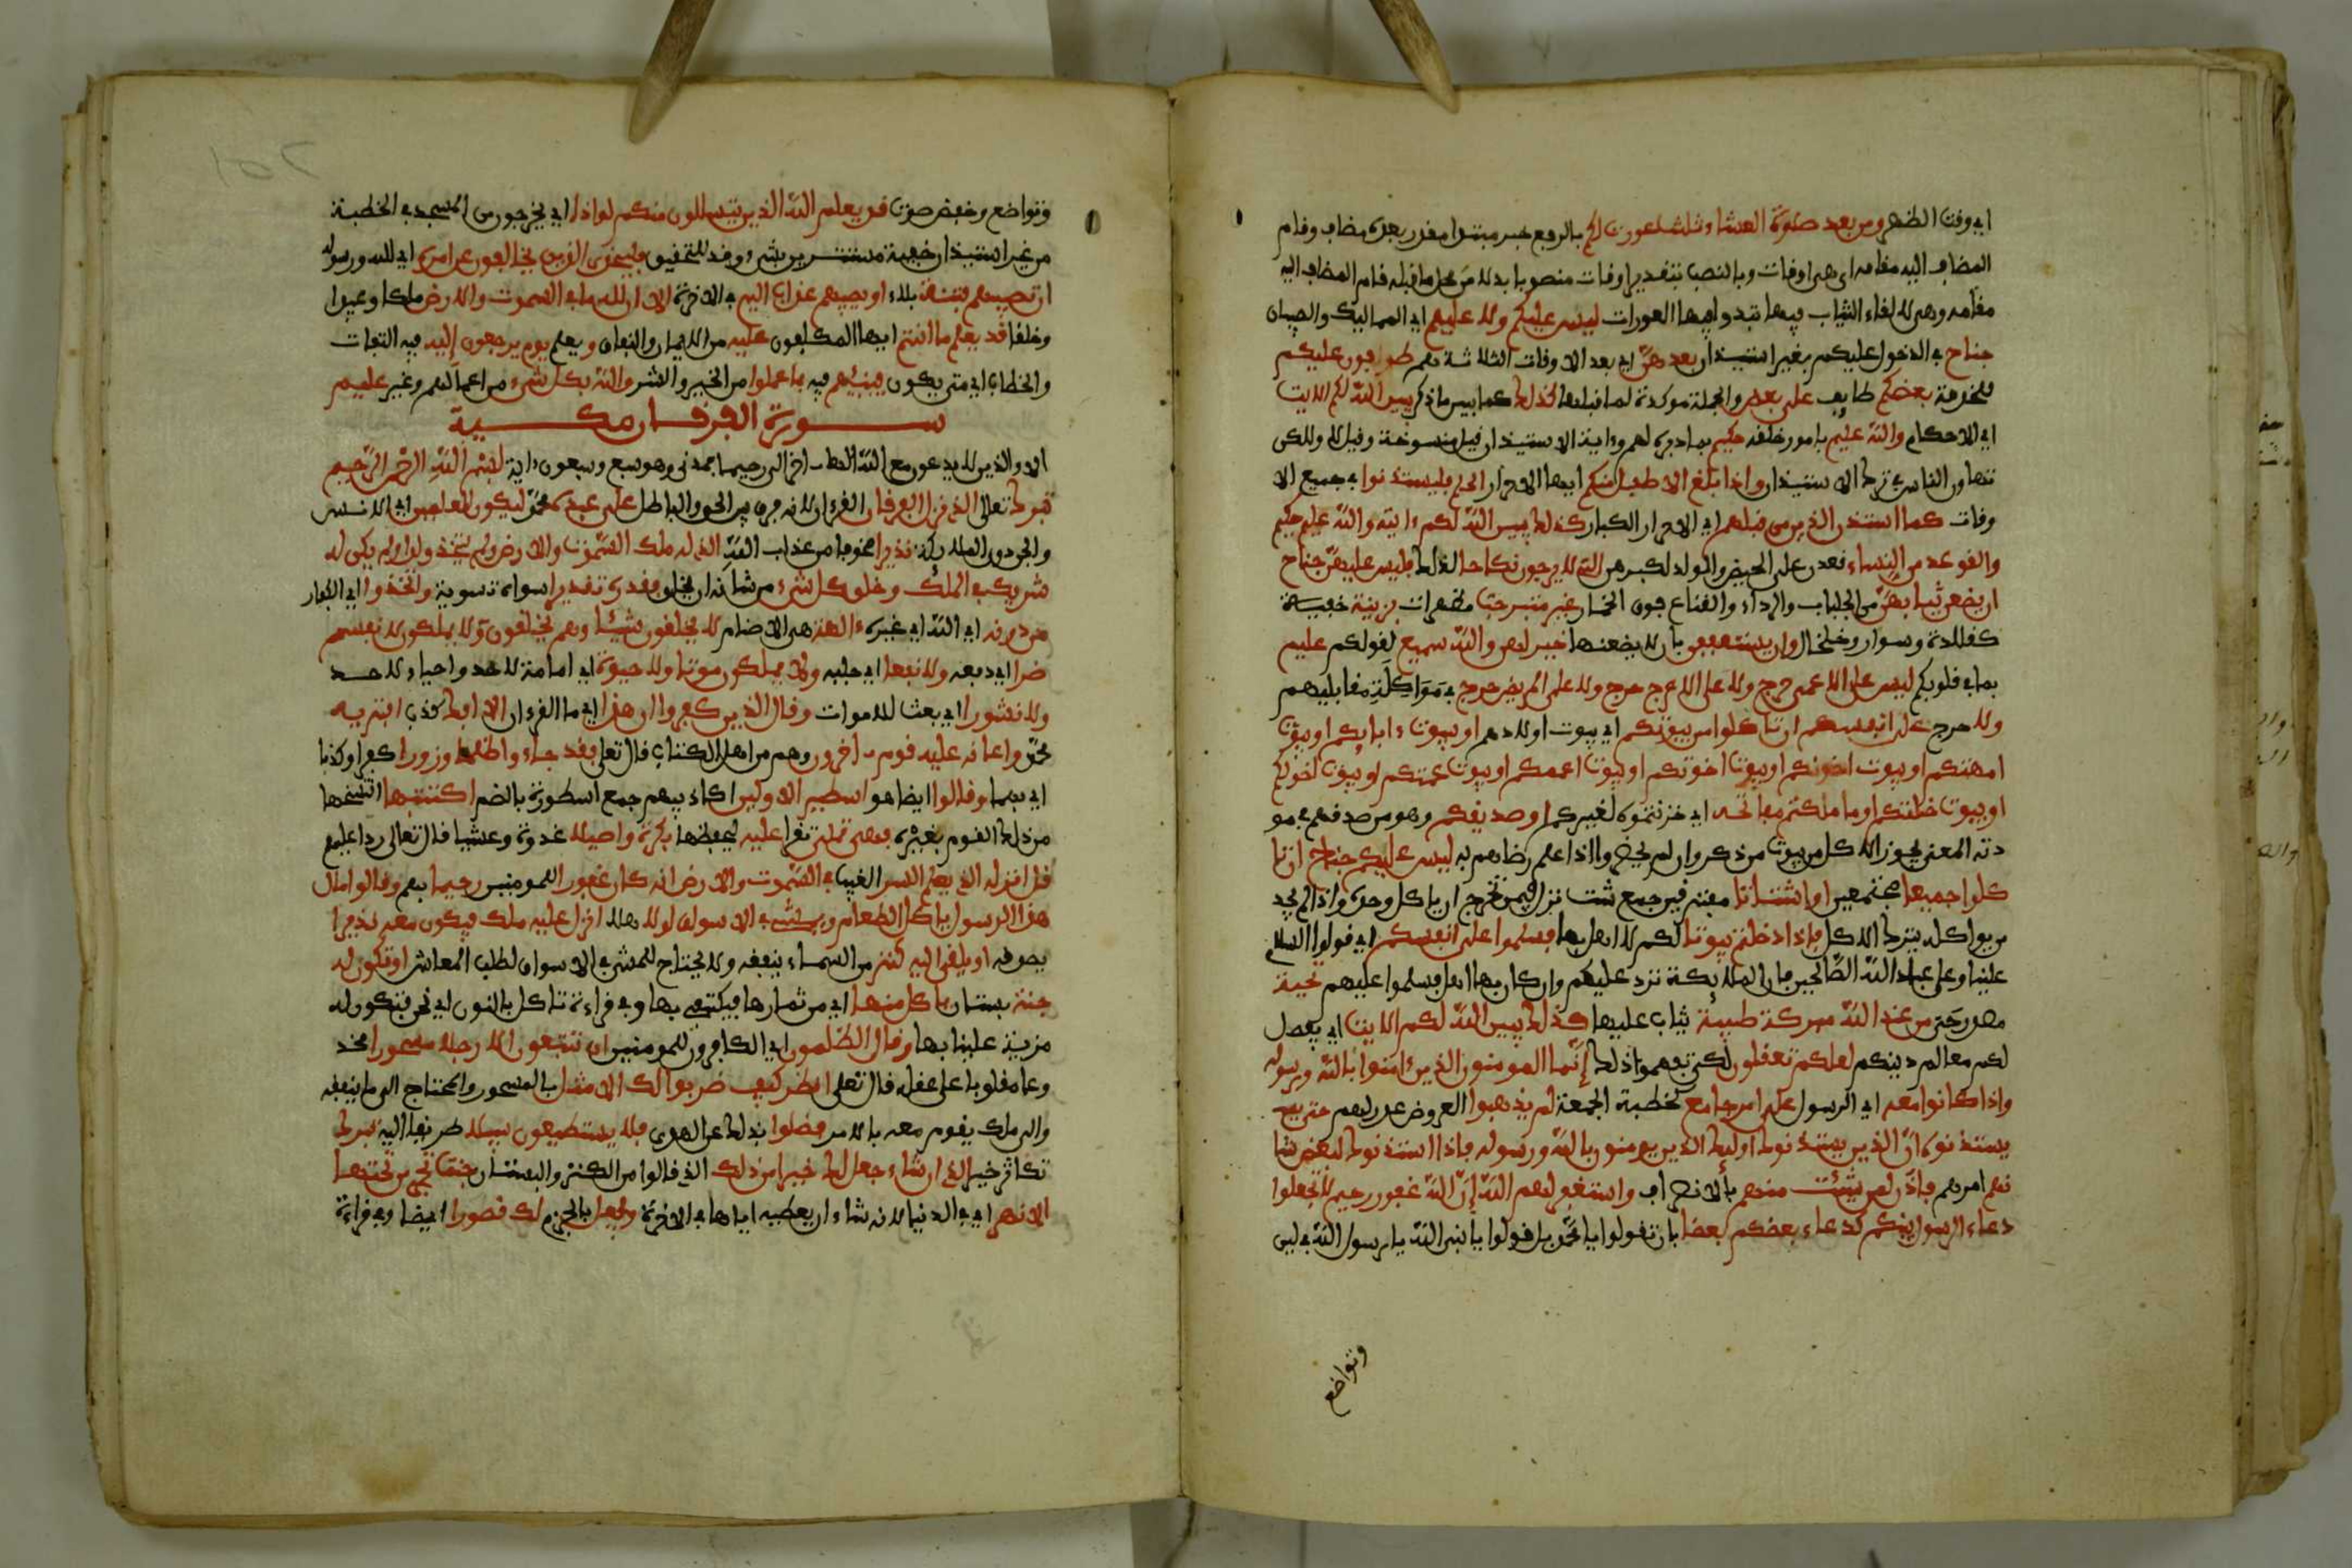 اي وقت الظهر ومن بعد صلوة العشاء ثلث عورت لكم بالرفع خبر مبتدا مقدر بعده مضاف وقام
المضاف اليه مقامه اي هي اوقات وبالنصب بتقدير اوقات منصوبا بدلا من محل ما قبله قام المضاف اليه
مقامه وهي لالقاء الثياب فيها تبدوا فيها العورات ليس عليكم ولا عليهم اي المماليك والصبيان
جناح في الدخول عليكم بغير استيذان بعدهن اي بعد الاوقات الثلاثة هم طوافون عليكم
للخدمة بعضكم طايف على بعض والجملة موكدة لما قبلها كذلك كما بين ما ذكر يبين الله لكم الايت
اي الاحكام والله عليم بامور خلقه حكيم بما دبره لهم وءاية الاستيذان قيل منسوخة وقيل لا ولكن
تهاون الناس في ترك الاستيذان واذا بلغ الاطفل منكم ايها الاحرار الحلم فليستذنوا في جميع الا
وقات كما استذن الذين من قبلهم اي الاحرار الكبار كذلك يبين الله لكم ءايته والله عليم حكيم
والقوعد من النساء قعدن على الحيض والولد لكبرهن التي لا يرجون نكاحا لذلك فليس عليهن جناح
ان يضعن ثيابهن من الجلباب والرداء والقناع فوق الخمار غير متبرجت مظهرات بزينة خفية
كقلادة وسوار وخلخال وان يستعففن بان لا يضعنها خير لهن والله سميع لقولكم عليم
بما في قلوبكم ليس على الاعمى حرج ولا على الاعرج حرج ولا على المريض حرج في مواكلة مقابليهم
ولا حرج على انفسكم ان تاكلوا من بيوتكم اي بيوت اولادهم او بيوت ءابايكم او بيوت
امهتكم او بيوت اخونكم او بيوت اخوتكم او بيوت اعممكم او بيوت عمتكم او بيوت اخولكم
او بيوت خلتكم او ما ملكتم مفاتحه اي خزنتموه لغيركم او صديقكم وهو من صدقهم في مو
دته المعنى يجوز الاكل من بيوت من ذكر وان لم يحضروا اذا علم رضاهم به ليس عليكم جناح ان تا
كلوا جميعا مجتمعين او اشتاتا مفترقين جمع شت نزل فيمن تحرج ان ياكل وحده واذا لم يجد
من يواكله يترك الاكل فاذا دخلتم بيوتا لكم لا اهل بها فسلموا على انفسكم اي قولوا السلام
علينا وعلى عباد الله الصالحين فان الملايكة ترد عليكم وان كان بها اهل فسلموا عليهم تحية
مصدر حي من عند الله مبركة طيبة يثاب عليها كذلك يبين الله لكم الايت اي يفصل
لكم معالم دينكم لعلكم تعقلون لكي تفهموا ذلك إنما المومنون الذين ءامنوا بالله ورسوله
واذا كانوا معه اي الرسول على امر جامع كخطبة الجمعة لم يذهبوا لعروض عذر لهم حتى
يستذنوه ان الذين يستذنونك اوليك الذين يومنون بالله ورسوله فاذا استذنوك لبعض شا
نهم امرهم فاذن لمن شئت منهم بالانصراف واستغفر لهم الله إن الله غفور رحيم لا تجعلوا
دعاء الرسول بينكم كدعاء بعضكم بعضا بان تقولوا يا محمد بل قولوا يا نبي الله يا رسول الله في لين
وتواضع
وتواضع وخفض صوت قد يعلم الله الذين يتسللون منكم لواذا اي يخرجون من المسجد في الخطبة
من غير استيذان خفية مستترين بشيء وقد للتحقيق فليحذر الذين يخالفون عن امره اي الله ورسوله
ان تصيبهم فتنة بلاء او يصيبهم عذاب اليم في الاخرة الا ان لله ما في السموت والارض ملكا وعبيدا
وخلقا قد يعلم ما انتم ايها المكلفون عليه من الايمان والنفاق ويعلم يوم يرجعون إليه فيه التفات
والخطاب اي متى يكون فينبئهم فيه بما عملوا من الخير والشر والله بكل شيء من اعمالهم وغير عليم
سورة الفرقان مكية
الا والذين لا يدعون مع الله الها اخر الى رحيما فمدني وهو سبع وسبعون ءاية بسم الله الرحمن الرحيم
تبرك تعالى الذي نزل الفرقان القرءان لانه فرق بين الحق والباطل على عبده محمد ليكون للعلمين اي الانس
والجن دون الملايكة نذيرا مخوفا من عذاب الله الذي له ملك السموت والارض ولم يتخذ ولدا ولم يكن له
شريك في الملك وخلق كل شيء من شانه ان يخلق فقدره تقديرا سواه تسوية واتخذوا اي الكفار
من دونه اي الله اي غيره ءالهة هي الاصنام لا يخلقون شيئا وهم يخلقون ولا يملكون لانفسهم
ضرا اي دفعه ولا نفعا اي جلبه ولا يملكون موتا ولا حيوة اي اماتة لاحد واحياء لاحد
ولا نشورا اي بعثا للاموات وقال الذين كفروا ان هذا اي ما القرءان الا افك كذب افتريه
محمد واعانه عليه قوم ءاخرون وهم من اهل الكتاب قال تعلى فقد جاءو ظلما وزورا كفرا وكذبا
اي بهما وقالوا ايضا هو اسطير الاولين اكاذيبهم جمع اسطورة بالضم اكتتبها انتسخها
من ذلك القوم بغيره فهي تملى تقرا عليه ليحفظها بكرة واصيلا غدوة وعشيا قال تعالى ردا عليهم
قل انزله الذي يعلم السر الغيب في السموت والارض انه كان غفورا للمومنين رحيما بهم وقالوا مال
هذا الرسول ياكل الطعام ويمشي في الاسواق لولا هلا انزل عليه ملك فيكون معه نذيرا
يصدقه او يلقى اليه كنز من السماء ينفقه ولا يحتاج للمشي في الاسواق لطلب المعاش او تكون له
جنة بستان ياكل منها اي من ثمارها فيكتفي بها وفي قراءة ناكل بالنون اي نحن فتكون له
مزية علينا بها وقال الظلمون اي الكافرون للمومنين ان تتبعون الا رجلا مسحورا مخد
وعا مغلوبا على عقله قال تعلى انظر كيف ضربوا لك الامثل بالمسحور والمحتاج الى ما ينفقه
والى ملك يقوم معه بالامر فضلوا بذلك عن الهدى فلا يستطيعون سبيلا طريقا اليه تبرك
تكاثر خير الذي ان شاء جعل لك خيرا من ذلك الذي قالوا من الكنز والبستان جنت تجري من تحتها
الانهر اي في الدنيا لانه شاء ان يعطيه اياها في الاخرة ويجعل بالجزم لك قصورا ايضا وفي قراءة